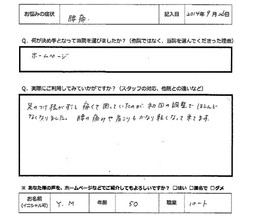 お悩みの症状 腰痛 記入日 2014年9月26日
Q. 何が決め手となって当院を選びましたか?(他院ではなく、当院を選んでくださった理由)
ホームページ
Q. 実際にご利用してみていかがですか?(スタッフの対応、他院との違いなど)
足のつけ根が 痛くて困っていたのが、初回の調整でほとんど
なくなりました。 腰の痛みや肩こりもかなり軽くなって来てます。
※ あなた様の声を、ホームページなどでご紹介してもよろしいですか? □はい □匿名で □ダメ
お名前 (イニシャル可) Y.M 年齢 50 職業 パート